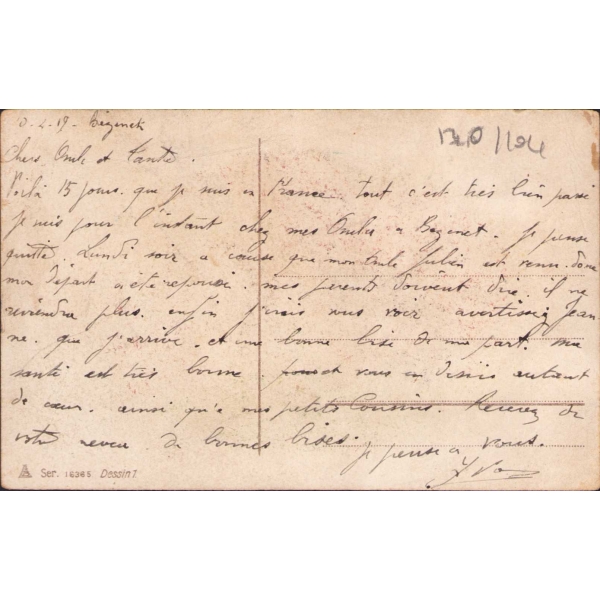 -2-19- Bézenet
1310/1194
Chers Oncle et Tante.
Voilà 15 jours. que je suis en France. tout c'est très bien passé
je suis pour l'instant chez mes Oncles a Bézenet. Je pense
quitté. Lundi soir a cause que mon Oncle Julien est venu. donc
mon départ a été repoussé. mes parents doivent dire. il ne
reviendra plus. enfin j'irais vous voir avertissez Jean-
ne. que j'arrive. et une bonne bise de ma part. ma
santé est très bonne. et vous en désire autant
de cœur. ainsi qu'a mes petits Cousins. Recevez de
votre neveu. de bonnes bises.
je pense a vous.
Ser. 18365 Dessin 7